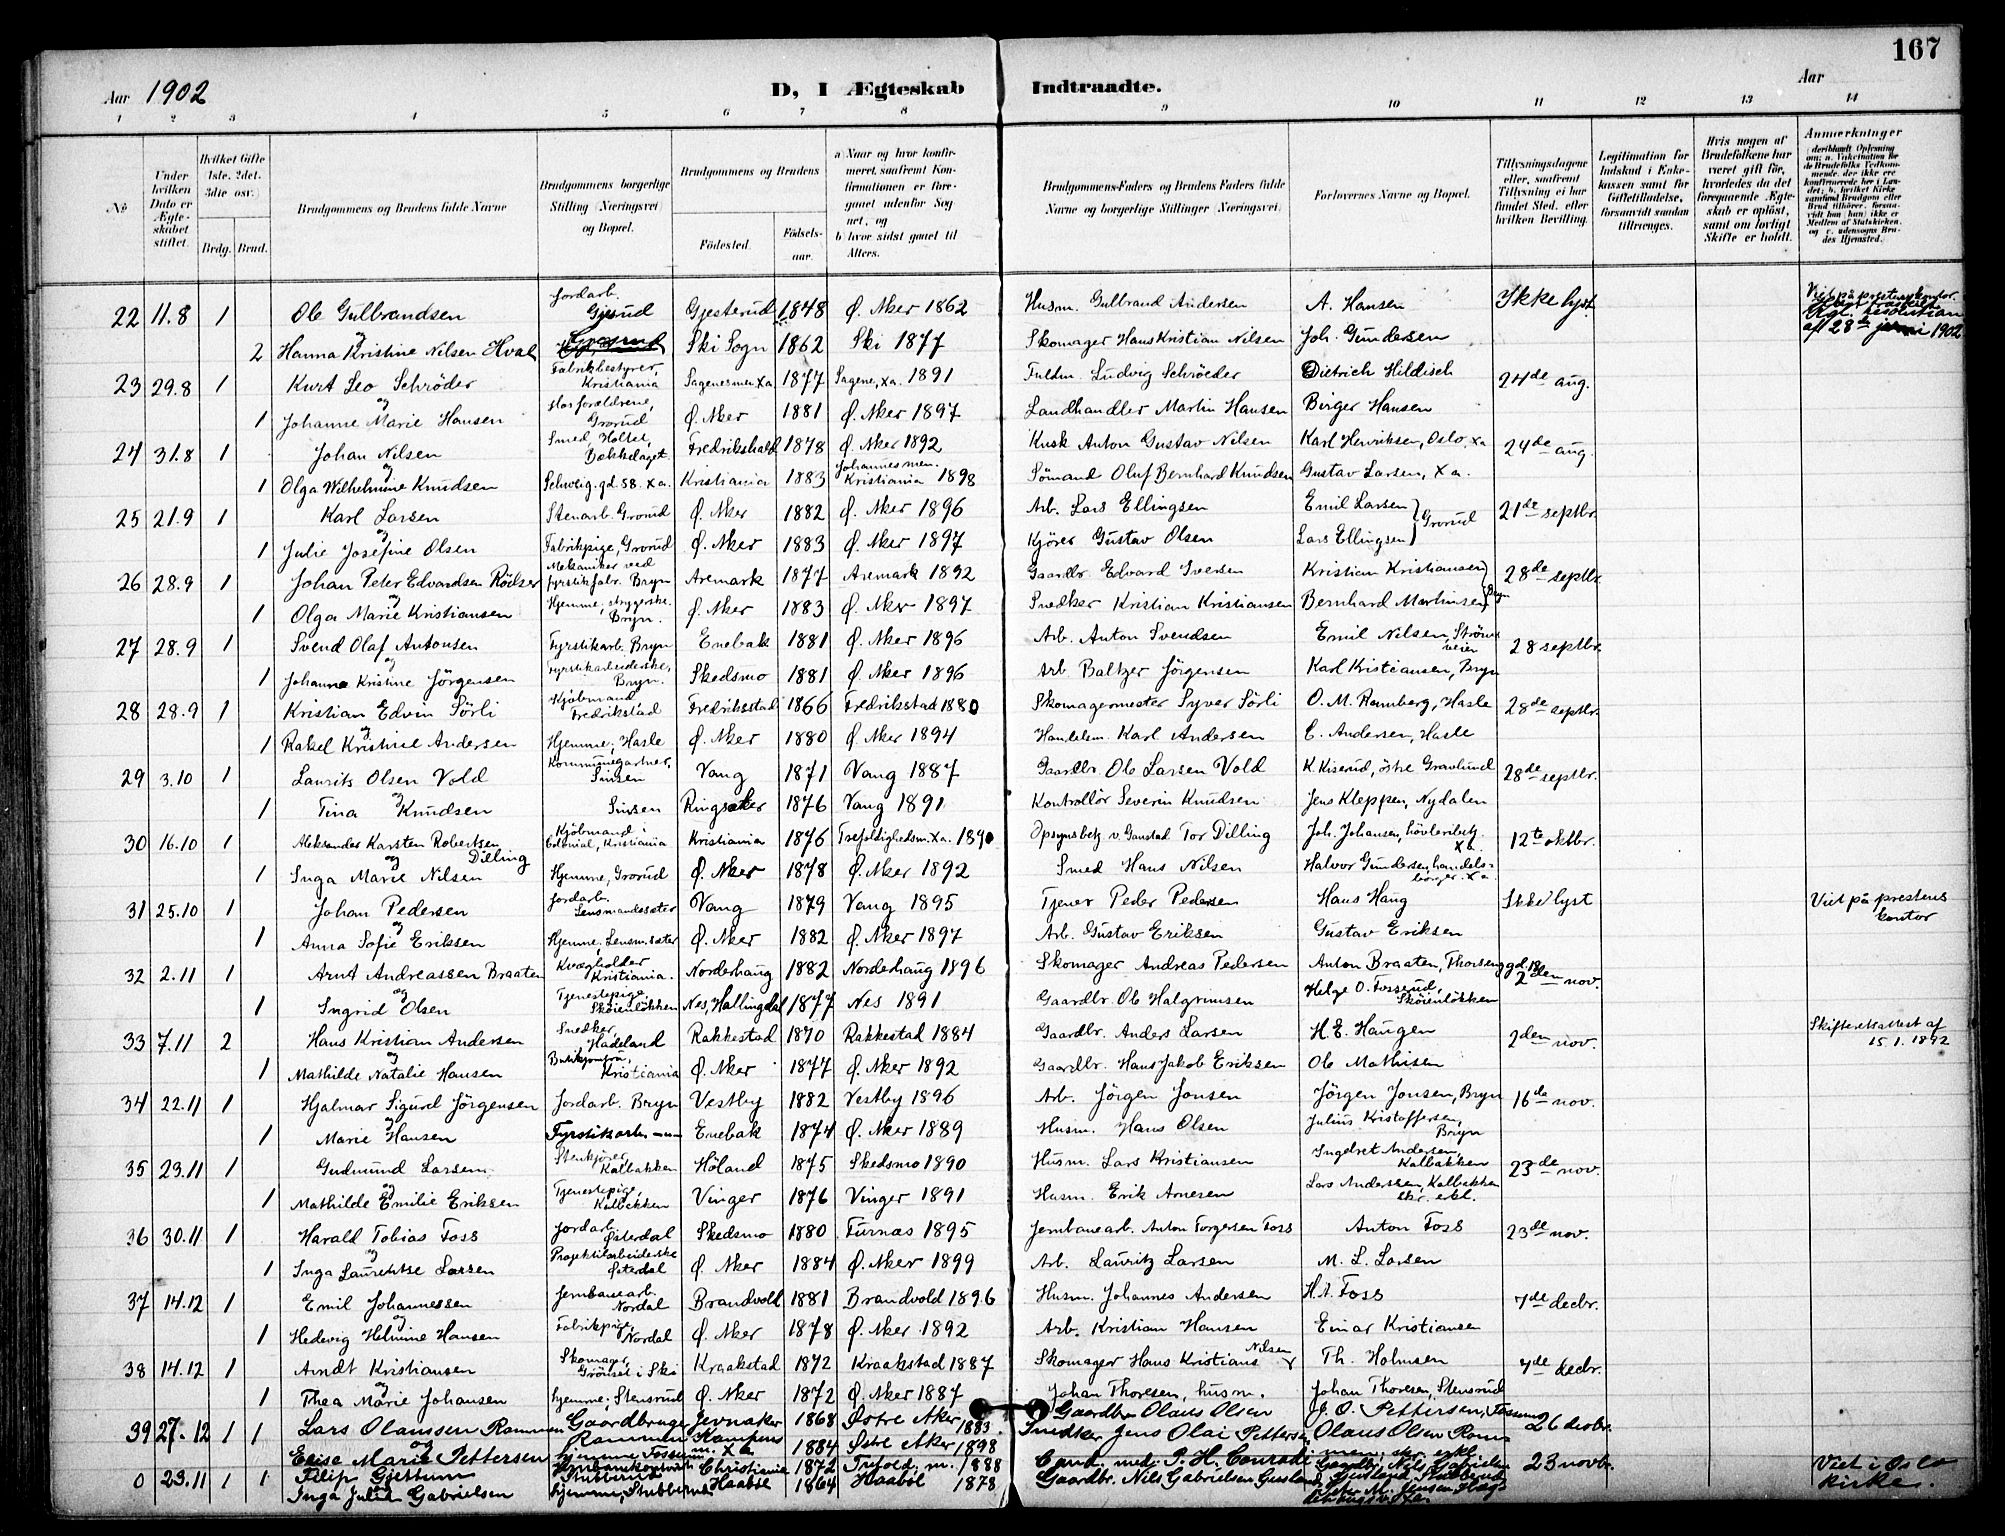 167
Aar 1902
D, I Ægteskab Indtraadte.
Aar
1 2 3 4 5 6 7 8 9 10 11 12 13 14
No
Under hvilken Dato er Ægteskabet stiftet.
Hvilket Gifte 1ste, 2det, 3die osv.
Brdg. Brud.
Brudgommens og Brudens fulde Navne
Brudgommens borgerlige Stilling (Næringsvei) og Bopæl.
Brudgommens og Brudens
Fødested. Fødselsaar.
a) Naar og hvor konfirmeret, saafremt Konfirmationen er foregaaet udenfor Sognet, og
b) hvor sidst gaaet til Alters.
Brudgommens Faders og Brudens Faders fulde Navne og borgerlige Stillinger (Næringsvei)
Forlovernes Navne og Bopæl.
Tillysningsdagene eller, saafremt Tillysning ei har fundet Sted, efter hvilken Bevilling.
Legitimation for Indskud i Enkekassen samt for Giftetilladelse, forsaavidt saadan tiltrænges.
Hvis nogen af Brudefolkene har været gift før, hvorledes da det foregaaende Ægteskab er opløst, samt om lovligt Skifte er holdt.
Anmærkninger
22 11.8 1 Ole Gulbrandsen Jordarb. Gjesterud 1848 Ø. Aker 1862 Husm. Gulbrand Andersen A. Hansen Ikke lyst
og
2 Hanna Kristine Nilsen Hval Ski Sogn 1862 Ski 1877 Skomager Hans Kristian Nilsen Joh. Gundersen af 28de 1902
23 29.8 1 Kurt Leo Schröder Fabrikbestyrer, Kristiania Sagenesmen. Xa 1877 Sagene, Xa. 1891 Fuldm. Ludvig Schröeder Dietrich Hildisch 24de aug.
og
1 Johanne Marie Hansen Hos forældrene, Grorud Ø. Aker 1881 Ø. Aker 1897 Landhandler Martin Hansen Birger Hansen
24 31.8 1 Johan Nilsen Smed, Holtet, Bækkelaget Fredrikshald 1878 Ø. Aker 1892 Kusk Anton Gustav Nilsen Karl Henriksen, Oslo, Xa 24de aug.
og
1 Olga Wilhelmine Knudsen Schweig. gd 58. Xa. Kristiania 1883 Johannes men. Kristiania 1898 Sömand Oluf Bernhard Knudsen Gustav Larsen, Xa.
25 21.9 1 Karl Larsen Stenarb. Grorud Ø. Aker 1882 Ø. Aker 1896 Arb. Lars Ellingsen Emil Larsen Grorud 21de septbr.
og
1 Julie Josefine Olsen Fabrikpige, Grorud Ø. Aker 1883 Ø. Aker 1897 Kjörer Gustav Olsen Lars Ellingsen
26 28.9 1 Johan Peter Edvardsen Rödser Mekaniker ved fyrstikfabr. Bryn Aremark 1877 Aremark 1892 Gaardbr. Edvard Iversen Kristian Kristiansen 28de septbr.
og
1 Olga Marie Kristiansen Hjemme, strygerske. Bryn. Ø. Aker 1883 Ø. Aker 1897 Snedker Kristian Kristiansen Bernhard Martinsen Bryn
27 28.9 1 Svend Olaf Antonsen Fyrstikarb. Bryn Enebak 1881 Ø. Aker 1896 Arb. Anton Svendsen Emil Nilsen, Strömsveien 28 septbr.
og
1 Johanne Kristine Jörgensen Fyrstikarbeiderske, Bryn. Skedsmo 1881 Ø. Aker 1896 Arb. Baltzer Jörgensen Karl Kristiansen, Bryn
28 28.9 1 Kristian Edvin Sörli Kjöbmand Fredrikstad Fredriksstad 1866 Fredriksstad 1880 Skomagermester Syver Sörli O. M. Ramberg, Hasle 28de septbr.
og
1 Rakel Kristine Andersen Hjemme, Hasle Ø. Aker 1880 Ø. Aker 1894 Handelsm. Karl Andersen E. Andersen, Hasle
29 3.10 1 Laurits Olsen Vold Kommunegartner, Sinsen Vang 1871 Vang 1887 Gaardbr. Ole Larsen Vold K. Kiserud, östre Gravlund 28de septbr.
og
1 Tina Knudsen Sinsen Ringsaker 1876 Vang 1891 Kontrollör Severin Knudsen Jens Kleppen, Nydalen
30 16.10 1 Aleksander Karsten Robertsen Dilling Kjöbmand i Colonial, Kristiania Kristiania 1876 Trefoldighedsm. Xa. 1890 Opsynsbetj. v. Gaustad Tor Dilling Joh. Johansen, Xa. 12te oktbr.
og
1 Inga Marie Nilsen Hjemme, Grorud Ø. Aker 1878 Ø. Aker 1892 Smed Hans Nilsen Halvor Gundersen, handelsborger. Xa.
31 25.10 1 Johan Pedersen Jordarb. Lensmandssæter Vang 1879 Vang 1895 Tjener Peder Pedersen Hans Haug Ikke lyst Viet på prestens kontor
og
1 Anna Sofie Eriksen Hjemme. Lensm.sæter Ø. Aker 1882 Ø. Aker 1897 Arb. Gustav Eriksen Gustav Eriksen
32 2.11 1 Arnt Andreassen Braaten Kvægholder Kristiania. Norderhaug 1882 Norderhaug 1896 Skomager Andreas Pedersen Anton Braaten, Thorsensgd. 18 2den nov.
og
1 Ingrid Olsen Tjenestepige, Sköienlökken Nes, Hallingdal 1877 Nes 1891 Gaardbr. Ole Halgrimsen Helge O. Fosserud, Sköienlökken
33 7.11 2 Hans Kristian Andersen Snedker, Hadeland Rakkestad 1870 Rakkestad 1884 Gaardbr. Anders Larsen H. E. Haugen 2den nov. Skifteretsattest af 15.1.1892
og
1 Mathilde Natalie Hansen Butikjomfru, Kristiania Ø. Aker 1877 Ø. Aker 1892 Gaardbr. Hans Jakob Eriksen Ole Mathisen
34 22.11 1 Hjalmar Sigurd Jörgensen Jordarb. Bryn Vestby 1882 Vestby 1896 Arb. Jörgen Jonsen Jörgen Jonsen, Bryn 16de nov.
og
1 Marie Hansen Fyrstikarb. -"- Enebak 1874 Ø. Aker 1889 Husm. Hans Olsen Julius Kristoffersen, Bryn
35 23.11 1 Gudmund Larsen Stenkjörer, Kalbakken Höland 1875 Skedsmo 1890 Husm. Lars Kristiansen Ingebret Andersen, Kalbakken 23de nov.
og
1 Mathilde Emilie Eriksen Tjenestepige, Kalbakken Vinger 1876 Vinger 1891 Husm. Erik Arnesen Lars Anderssen, Kalbakken skr. erkl.
36 30.11 1 Harald Tobias Foss Jordarb. Østerdal Skedsmo 1880 Furnas 1895 Jernbanearb. Anton Torgersen Foss Anton Foss 23de nov.
og
1 Inga Lauretse Larsen Projektilarbeiderske Østerdal Ø. Aker 1884 Ø. Aker 1899 Arb. Lauritz Larsen M. L. Larsen
37 14.12 1 Emil Johannessen Jernbanearb. Nordal Brandvold 1881 Brandvold 1896 Husm. Johannes Andersen H. A. Foss 7de decbr.
og
1 Hedevig Helmine Hansen Fabrikpige, Nordal Ø. Aker 1878 Ø. Aker 1892 Arb. Kristian Hansen Einar Kristiansen
38 14.12 1 Arndt Kristiansen Skomager, Grönset i Ski Kraakstad 1872 Kraakstad 1887 Skomager Hans Kristians Nilsen Th. Holmsen 7de decbr.
og
1 Thea Marie Johansen hjemme, Stensrud Ø. Aker 1872 Ø. Aker 1887 Johan Thoresen, husm. Johan Thoresen, Stensrud
39 27.12 1 1 Lars Olaussen Rammen Gaardbruger, Rammen Jevnaker 1868 Østre Aker 1883 Gaardbr. Olaus Olsen J. O. Pettersen, 26 decbr.
og
Elise Marie Pettersen Kampens m. Xa. 1884 Østre Aker 1898 Snedker Jens Olai Pettersen Olaus Olsen
0 23.11 1 1 Filip Gjessum Christiania 1872 Trefold. m. 1888 Cand. med. P. H. Conradi Gaardbr. Nils Gabrielsen 23 novbr. Viet i Oslo kirke.
Inga Julie Gabrielsen hjemme, Stubberud Haabøl 1864 Haabøl 1878 Gaardbr. Nils Gabrielsen